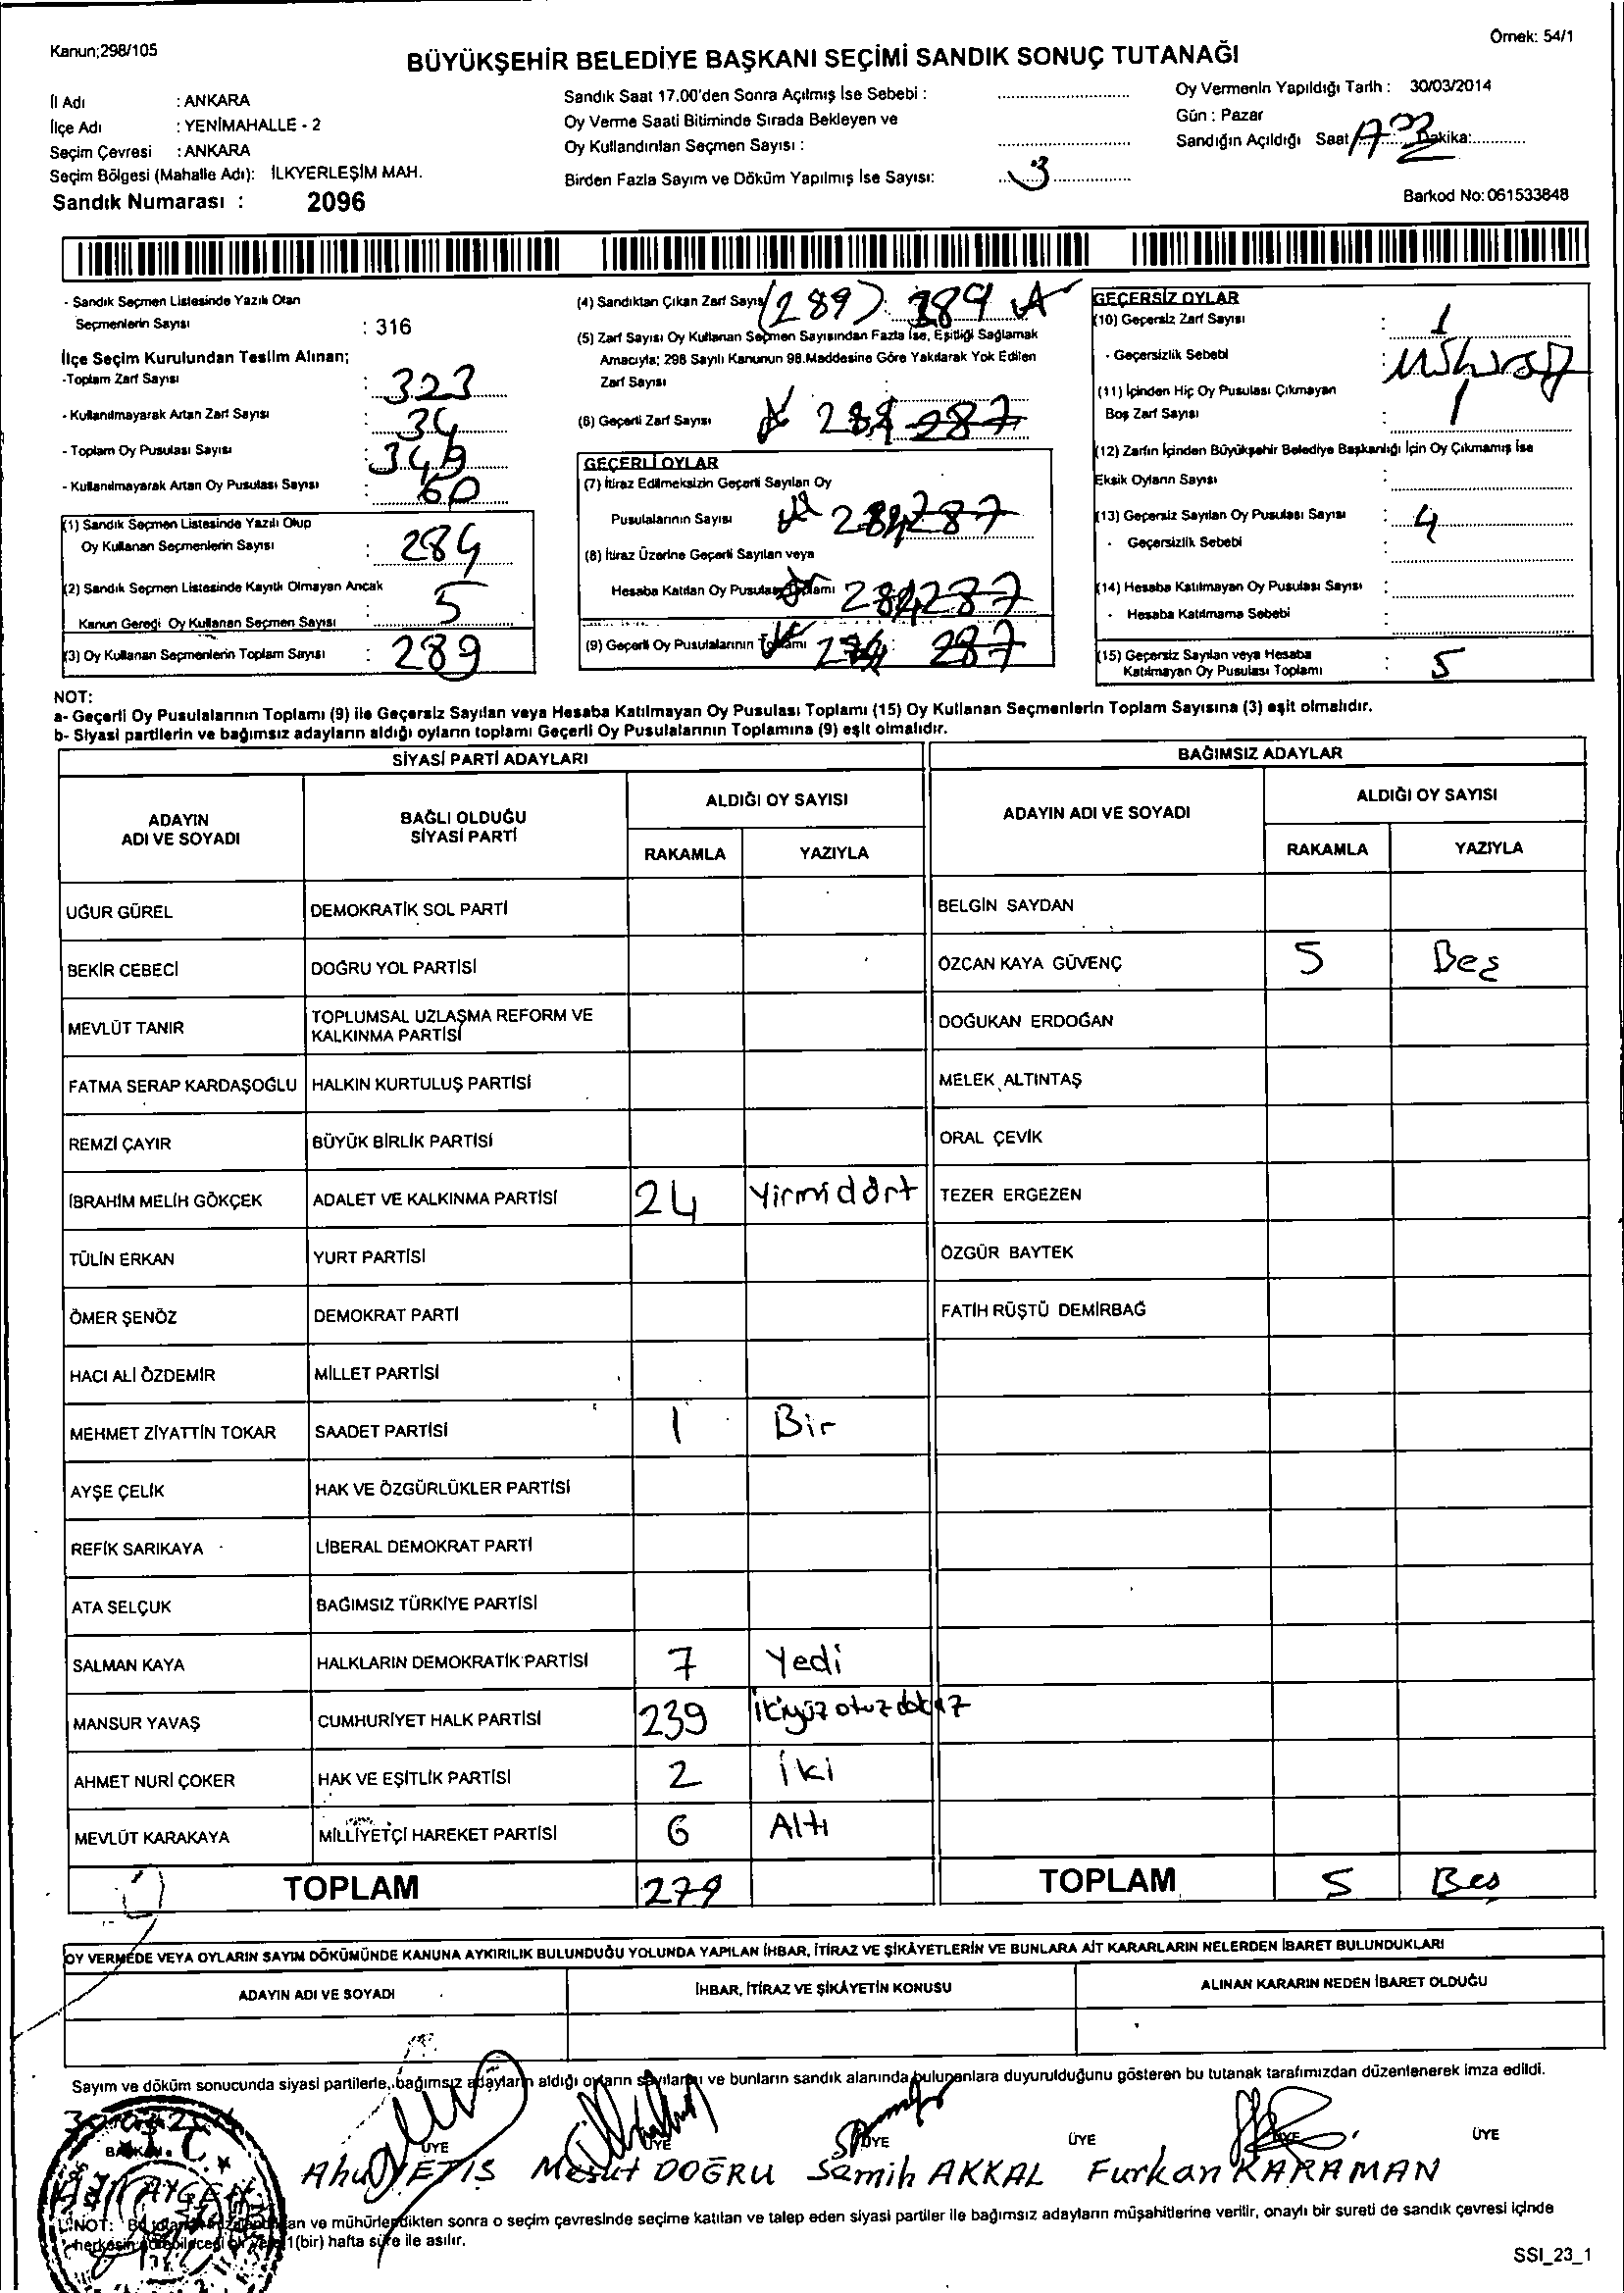 Kanun;298/105
Örnek: 54/1
BÜYÜKŞEHİR BELEDİYE BAŞKANI SEÇİMİ SANDIK SONUÇ TUTANAĞI
İl Adı : ANKARA
İlçe Adı : YENİMAHALLE - 2
Seçim Çevresi : ANKARA
Seçim Bölgesi (Mahalle Adı): İLKYERLEŞİM MAH.
Sandık Numarası : 2096
Sandık Saat 17.00'den Sonra Açılmış İse Sebebi :
Oy Verme Saati Bitiminde Sırada Bekleyen ve
Oy Kullandırılan Seçmen Sayısı :
Birden Fazla Sayım ve Döküm Yapılmış İse Sayısı: 3
Oy Vermenin Yapıldığı Tarih : 30/03/2014
Gün : Pazar
Sandığın Açıldığı Saat Dakika:
Barkod No: 061533848
- Sandık Seçmen Listesinde Yazılı Olan
Seçmenlerin Sayısı : 316
İlçe Seçim Kurulundan Teslim Alınan;
-Toplam Zarf Sayısı : 323
- Kullanılmayarak Artan Zarf Sayısı : 34
- Toplam Oy Pusulası Sayısı : 349
- Kullanılmayarak Artan Oy Pusulası Sayısı : 60
(1) Sandık Seçmen Listesinde Yazılı Olup
Oy Kullanan Seçmenlerin Sayısı : 284
(2) Sandık Seçmen Listesinde Kayıtlı Olmayan Ancak
Kanun Gereği Oy Kullanan Seçmen Sayısı : 5
(3) Oy Kullanan Seçmenlerin Toplam Sayısı : 289
(4) Sandıktan Çıkan Zarf Sayısı (289) 289
(5) Zarf Sayısı Oy Kullanan Seçmen Sayısından Fazla İse, Eşitliği Sağlamak
Amacıyla; 298 Sayılı Kanunun 98.Maddesine Göre Yakılarak Yok Edilen
Zarf Sayısı :
(6) Geçerli Zarf Sayısı 287
GEÇERLİ OYLAR
(7) İtiraz Edilmeksizin Geçerli Sayılan Oy
Pusulalarının Sayısı 284 287
(8) İtiraz Üzerine Geçerli Sayılan veya
Hesaba Katılan Oy Pusulası Toplamı 284 287
(9) Geçerli Oy Pusulalarının Toplamı : 287
GEÇERSİZ OYLAR
(10) Geçersiz Zarf Sayısı : 1
- Geçersizlik Sebebi :
(11) İçinden Hiç Oy Pusulası Çıkmayan
Boş Zarf Sayısı : 1
(12) Zarfın İçinden Büyükşehir Belediye Başkanlığı İçin Oy Çıkmamış İse
Eksik Oyların Sayısı :
(13) Geçersiz Sayılan Oy Pusulası Sayısı : 4
- Geçersizlik Sebebi :
(14) Hesaba Katılmayan Oy Pusulası Sayısı :
- Hesaba Katılmama Sebebi :
(15) Geçersiz Sayılan veya Hesaba
Katılmayan Oy Pusulası Toplamı : 5
NOT:
a- Geçerli Oy Pusulalarının Toplamı (9) ile Geçersiz Sayılan veya Hesaba Katılmayan Oy Pusulası Toplamı (15) Oy Kullanan Seçmenlerin Toplam Sayısına (3) eşit olmalıdır.
b- Siyasi partilerin ve bağımsız adayların aldığı oyların toplamı Geçerli Oy Pusulalarının Toplamına (9) eşit olmalıdır.
SİYASİ PARTİ ADAYLARI
ADAYIN ADI VE SOYADI
BAĞLI OLDUĞU SİYASİ PARTİ
ALDIĞI OY SAYISI
RAKAMLA YAZIYLA
BAĞIMSIZ ADAYLAR
ADAYIN ADI VE SOYADI
ALDIĞI OY SAYISI
RAKAMLA YAZIYLA
UĞUR GÜREL DEMOKRATİK SOL PARTİ BELGİN SAYDAN
BEKİR CEBECİ DOĞRU YOL PARTİSİ ÖZCAN KAYA GÜVENÇ 5 Beş
MEVLÜT TANIR TOPLUMSAL UZLAŞMA REFORM VE KALKINMA PARTİSİ DOĞUKAN ERDOĞAN
FATMA SERAP KARDAŞOĞLU HALKIN KURTULUŞ PARTİSİ MELEK ALTINTAŞ
REMZİ ÇAYIR BÜYÜK BİRLİK PARTİSİ ORAL ÇEVİK
İBRAHİM MELİH GÖKÇEK ADALET VE KALKINMA PARTİSİ 24 Yirmidört TEZER ERGEZEN
TÜLİN ERKAN YURT PARTİSİ ÖZGÜR BAYTEK
ÖMER ŞENÖZ DEMOKRAT PARTİ FATİH RÜŞTÜ DEMİRBAĞ
HACI ALİ ÖZDEMİR MİLLET PARTİSİ
MEHMET ZİYATTİN TOKAR SAADET PARTİSİ 1 Bir
AYŞE ÇELİK HAK VE ÖZGÜRLÜKLER PARTİSİ
REFİK SARIKAYA LİBERAL DEMOKRAT PARTİ
ATA SELÇUK BAĞIMSIZ TÜRKİYE PARTİSİ
SALMAN KAYA HALKLARIN DEMOKRATİK PARTİSİ 7 Yedi
MANSUR YAVAŞ CUMHURİYET HALK PARTİSİ 239 İkiyüzotuzdokuz
AHMET NURİ ÇOKER HAK VE EŞİTLİK PARTİSİ 2 İki
MEVLÜT KARAKAYA MİLLİYETÇİ HAREKET PARTİSİ 6 Altı
TOPLAM 279 TOPLAM 5 Beş
OY VERMEDE VEYA OYLARIN SAYIM DÖKÜMÜNDE KANUNA AYKIRILIK BULUNDUĞU YOLUNDA YAPILAN İHBAR, İTİRAZ VE ŞİKÂYETLERİN VE BUNLARA AİT KARARLARIN NELERDEN İBARET BULUNDUKLARI
ADAYIN ADI VE SOYADI İHBAR, İTİRAZ VE ŞİKÂYETİN KONUSU ALINAN KARARIN NEDEN İBARET OLDUĞU
Sayım ve döküm sonucunda siyasi partilerle, bağımsız adayların aldığı oyların sayıları ve bunların sandık alanında bulunanlara duyurulduğunu gösteren bu tutanak tarafımızdan düzenlenerek imza edildi.
BAŞKAN ÜYE ÜYE ÜYE ÜYE ÜYE ÜYE
YETİŞ Mesut DOĞRU Semih AKKAL Furkan KARAMAN
NOT: ve mühürlendikten sonra o seçim çevresinde seçime katılan ve talep eden siyasi partiler ile bağımsız adayların müşahitlerine verilir, onaylı bir sureti de sandık çevresi içinde
herkesin 1(bir) hafta süre ile asılır.
SSI_23_1